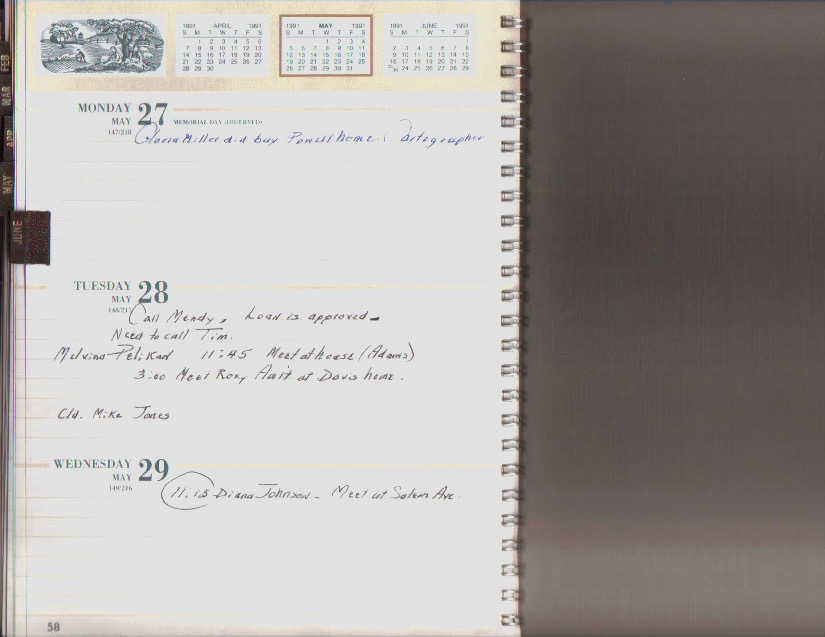 1991 APRIL 1991
S M T W T F S
1 2 3 4 5 6
7 8 9 10 11 12 13
14 15 16 17 18 19 20
21 22 23 24 25 26 27
28 29 30
1991 MAY 1991
S M T W T F S
1 2 3 4
5 6 7 8 9 10 11
12 13 14 15 16 17 18
19 20 21 22 23 24 25
26 27 28 29 30 31
1991 JUNE 1991
S M T W T F S
1
2 3 4 5 6 7 8
9 10 11 12 13 14 15
16 17 18 19 20 21 22
23/30 24 25 26 27 28 29
FEB
MAR
APR
MAY
JUNE
MONDAY 27
MAY MEMORIAL DAY (OBSERVED)
147/218
Gloria Miller did buy Powell home. Cartographer
TUESDAY 28
MAY
148/217
Call Mendy, Loan is approved -
Need to call Tim.
Melvina Pelikan 11:45 Meet at house (Adams)
3:00 Meet Roxy at Davis home.
Cld. Mike Jones
WEDNESDAY 29
MAY
149/216
11:15 Diana Johnson - Meet at Salem Ave.
58